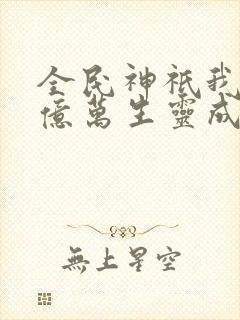 全民神祇我
億萬生靈成
無上星空